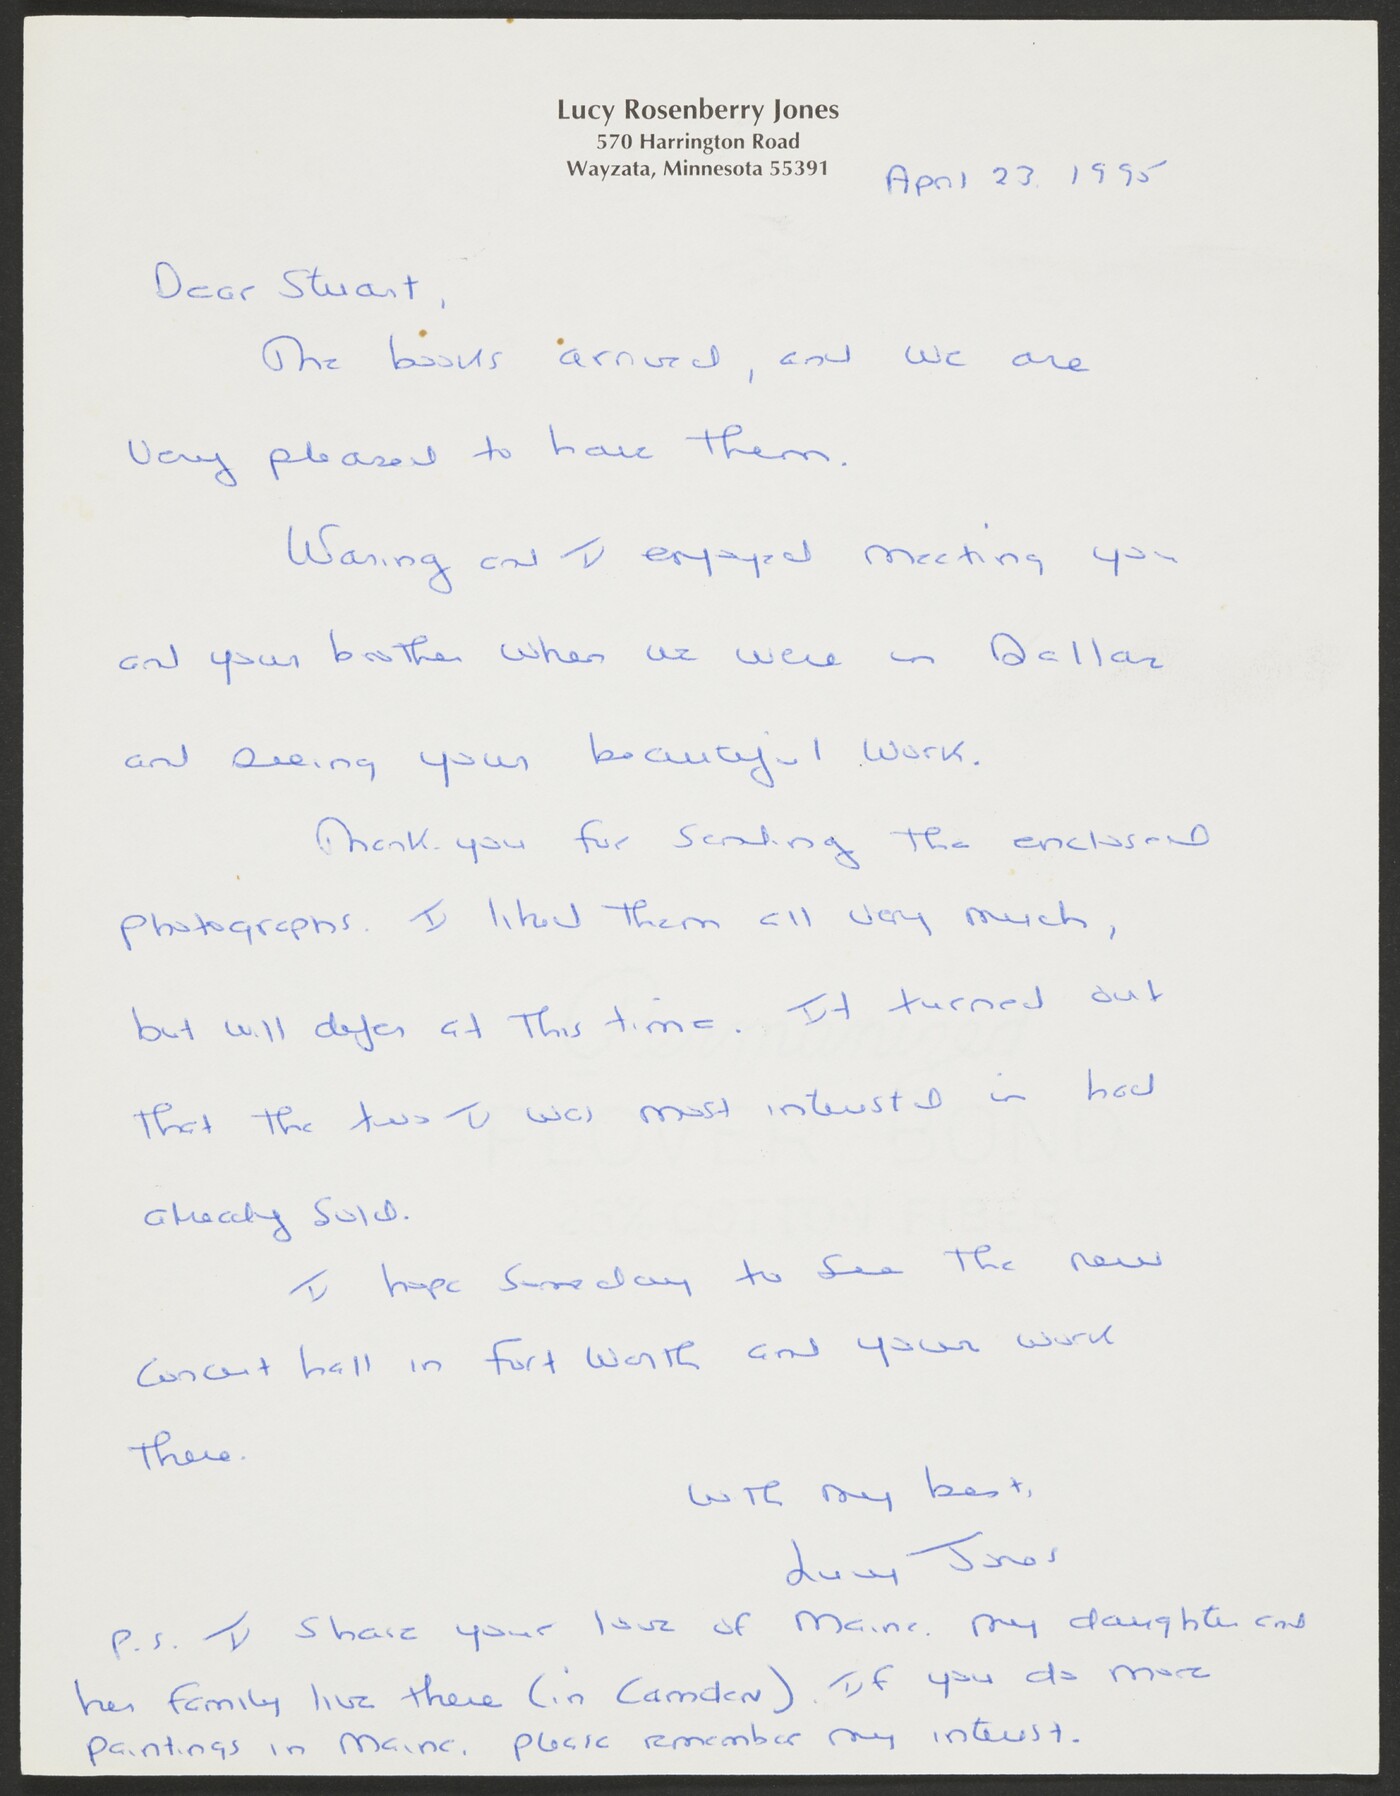 Lucy Rosenberry Jones
570 Harrington Road
Wayzata, Minnesota 55391
April 23. 1995
Dear Stuart,
The books arrived, and we are
very pleased to have them.
Waring and I enjoyed meeting you
and your brother when we were in Dallas
and seeing your beautiful work.
Thank you for sending the enclosed
photographs. I liked them all very much,
but will defer at this time. It turned out
that the two I was most interested in had
already sold.
I hope someday to see the new
concert hall in Fort Worth and your work
there.
With my best,
Lucy Jones
P.S. I share your love of Maine. My daughter and
her family live there (in Camden). If you do more
paintings in Maine, please remember my interest.